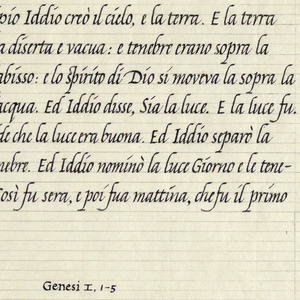 pio Iddio creò il cielo, e la terra. E la terra
a diserta e vacua: e tenebre erano sopra la
abisso: e lo spirito di Dio si moveva la sopra la
acqua. Ed Iddio disse, Sia la luce. E la luce fu.
de che la luce era buona. Ed Iddio separò la
nebre. Ed Iddio nominò la luce Giorno e le tene-
Così fu sera, e poi fua mattina, che fu il primo
Genesi I, 1-5